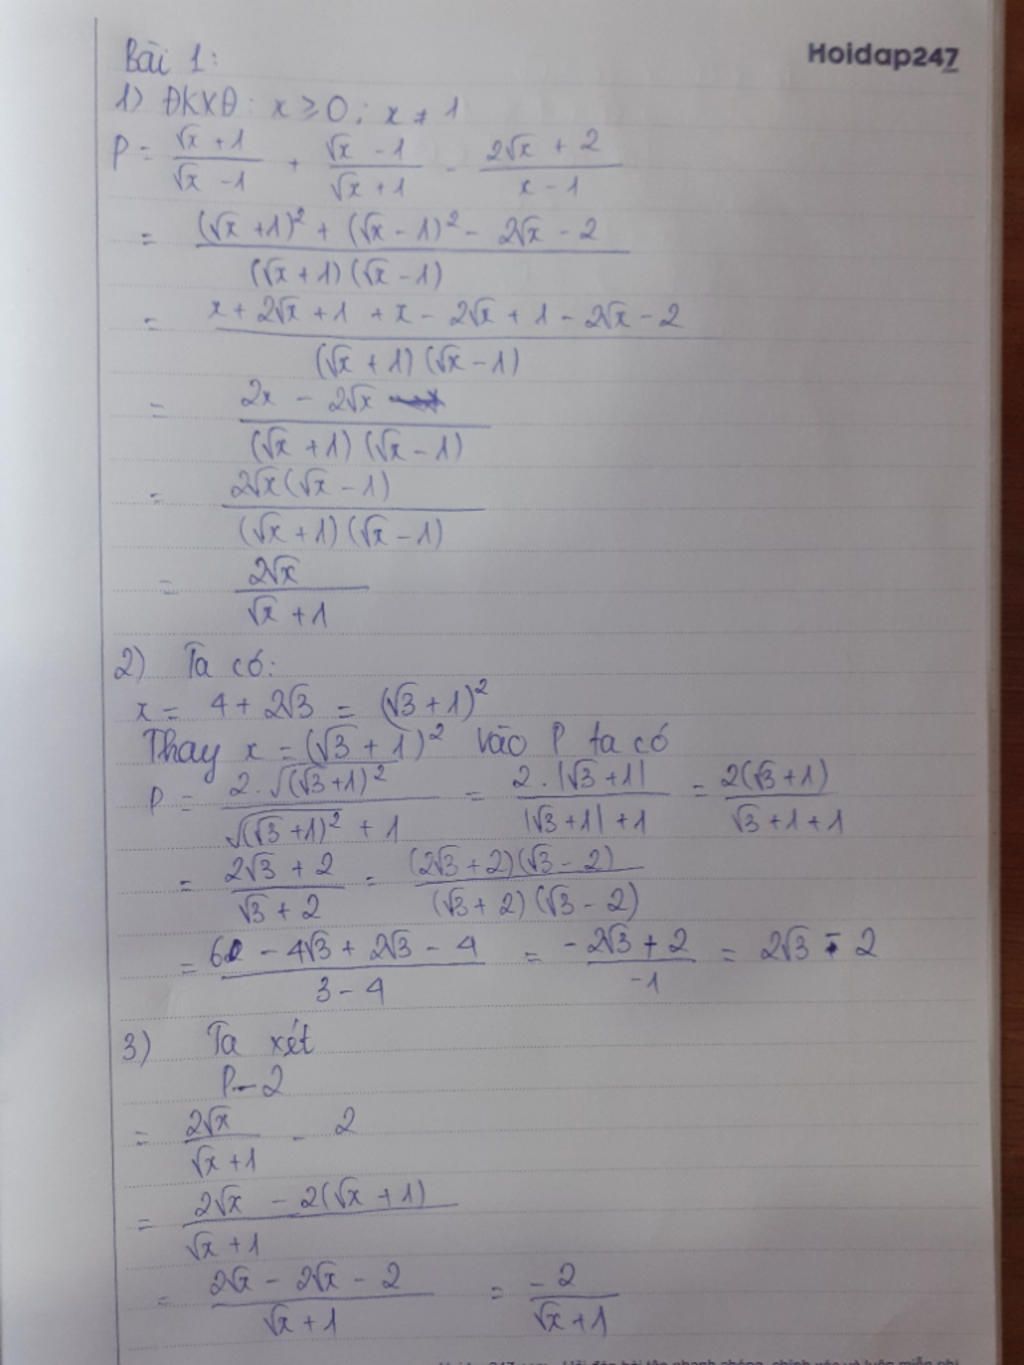 Hoidap247
Bài 1:
1) ĐKXĐ: x ≥ 0; x ≠ 1
P = (√x + 1)/(√x - 1) + (√x - 1)/(√x + 1) - (2√x + 2)/(x - 1)
= ((√x + 1)² + (√x - 1)² - 2√x - 2)/((√x + 1)(√x - 1))
= (x + 2√x + 1 + x - 2√x + 1 - 2√x - 2)/((√x + 1)(√x - 1))
= (2x - 2√x)/((√x + 1)(√x - 1))
= (2√x(√x - 1))/((√x + 1)(√x - 1))
= (2√x)/(√x + 1)
2) Ta có:
x = 4 + 2√3 = (√3 + 1)²
Thay x = (√3 + 1)² vào P ta có
P = (2.√((√3+1)²))/(√((√3+1)²) + 1) = (2.|√3+1|)/(|√3+1|+1) = (2(√3+1))/(√3+1+1)
= (2√3 + 2)/(√3 + 2) = ((2√3+2)(√3-2))/((√3+2)(√3-2))
= (6 - 4√3 + 2√3 - 4)/(3 - 4) = (-2√3 + 2)/(-1) = 2√3 - 2
3) Ta xét
P - 2
= (2√x)/(√x + 1) - 2
= (2√x - 2(√x + 1))/(√x + 1)
= (2√x - 2√x - 2)/(√x + 1) = (-2)/(√x + 1)